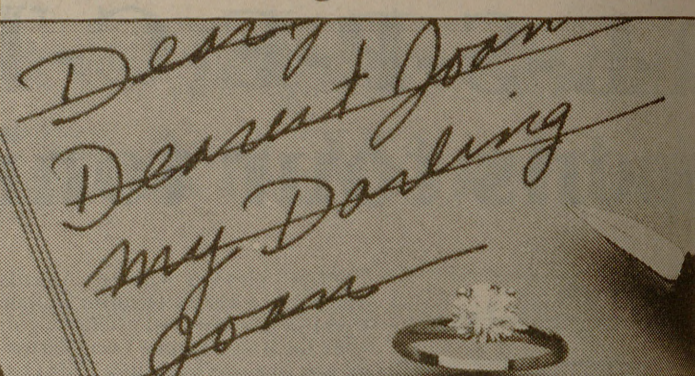 Dearest Joan
my Darling
Joan